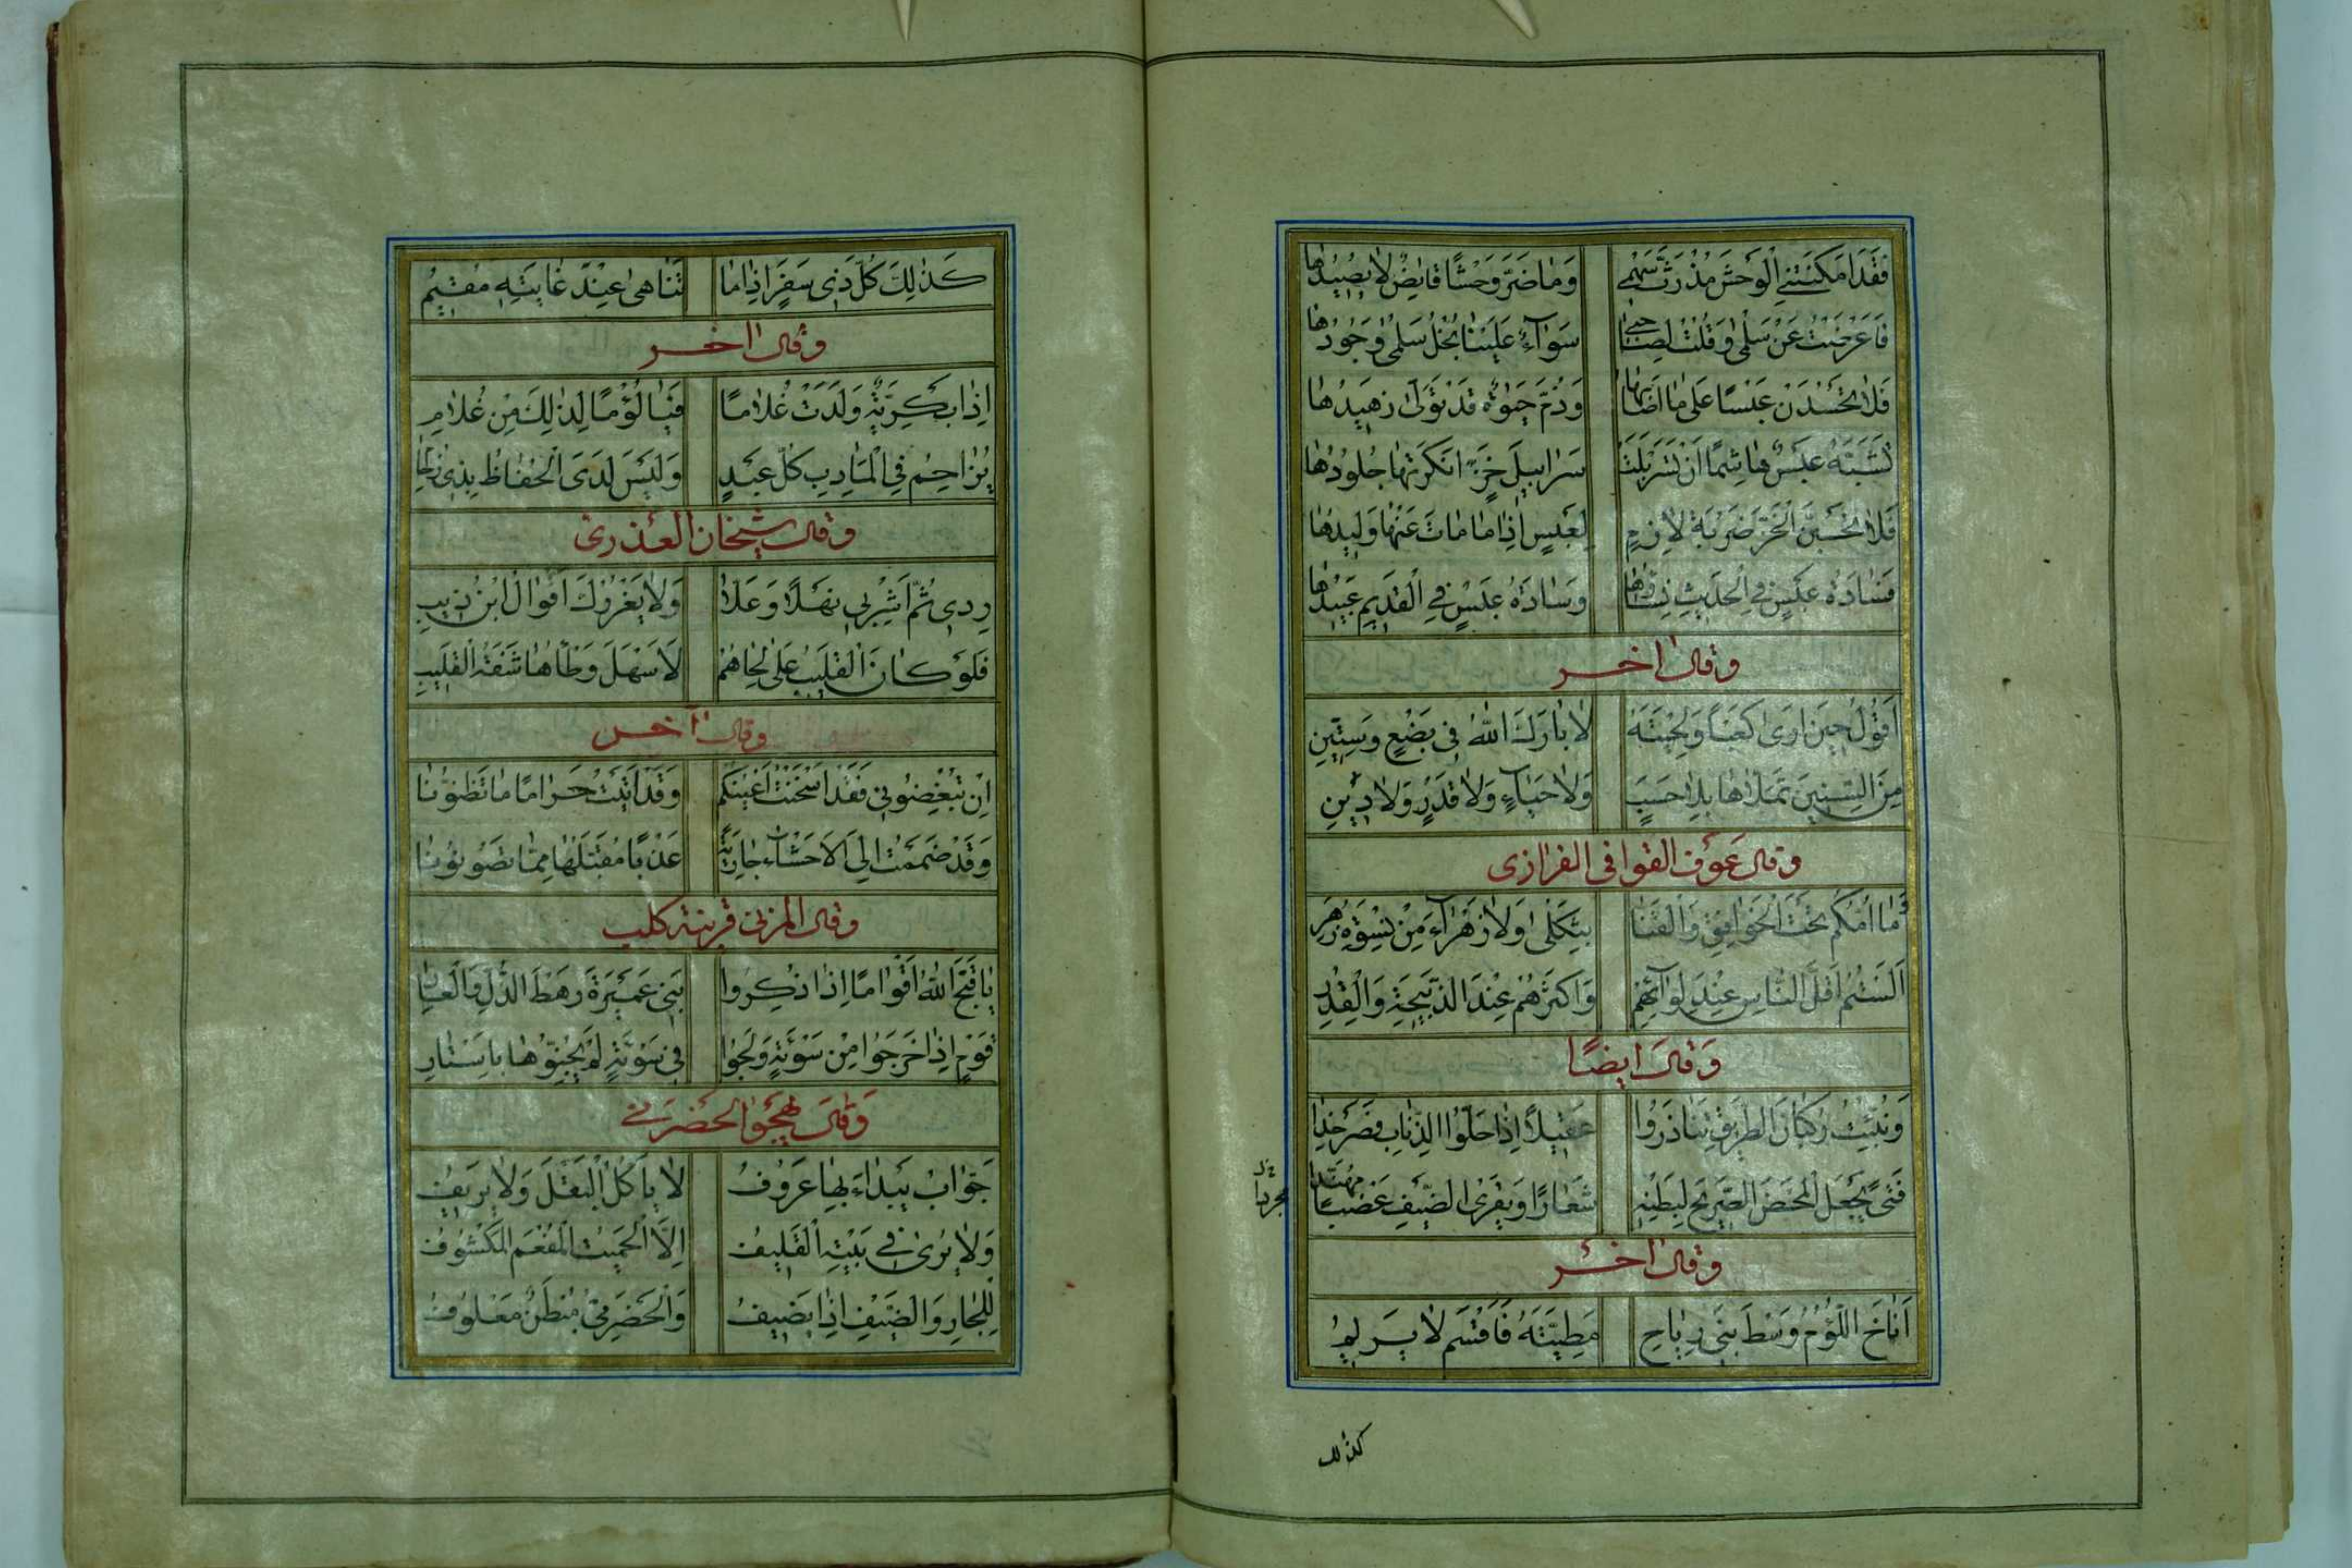 فَقَدْ اَمْكَنَتْنِي الْوَحْشُ مُذْ رَثَّ سَهْمِي وَمَا ضَرَّ وَحْشًا قَانِصٌ لَا يَصِيدُهَا
فَاَعْرَضْتُ عَنْ سَلْمَى وَقُلْتُ لِصَاحِبِي سَوَآءٌ عَلَيْنَا بُخْلُ سَلْمَى وَجُودُهَا
فَلَا تَحْسُدَنْ عَبْسًا عَلَى مَا اَصَابَهَا وَذُمَّ حَيٰوةً قَدْ تَوَلَّى زَهِيدُهَا
تَشَبَّهَ عَبْسٌ هَاشِمًا اَنْ تَسَرْبَلَتْ سَرَابِيلَ خَزٍّ اَنْكَرَتْهَا جُلُودُهَا
فَلَا تَحْسَبَنَّ الْخَزَّ ضَرْبَةَ لَازِمٍ لِعَبْسٍ اِذَا مَا مَاتَ عَنْهَا وَلِيدُهَا
فَسَادَةُ عَبْسٍ فِي الْحَدِيثِ نِسَاؤُهَا وَسَادَةُ عَبْسٍ فِي الْقَدِيمِ عَبِيدُهَا
وقال اخر
اَقُولُ حِينَ اَرَى كَعْبًا وَلِحْيَتَهُ لَا بَارَكَ اللهُ فِي بِضْعٍ وَسِتِّينِ
مِنَ السِّنِينَ تَمَلَّاهَا بِلَا حَسَبٍ وَلَا حَيَاءٍ وَلَا قَدْرٍ وَلَا دِينِ
وقال عوف القوافى الفزارى
وَمَا اُمُّكُمْ تَحْتَ الْخَوَافِقِ وَالْقَنَا بِثَكْلَى وَلَا زَهْرَآءَ مِنْ نِسْوَةٍ زُهْرِ
اَلَسْتُمْ اَقَلَّ النَّاسِ عِنْدَ لِوَآئِهِمْ وَاَكْثَرَهُمْ عِنْدَ الذَّبِيحَةِ وَالْقِدْرِ
وَقَالَ اَيضًا
وَنُبِّئْتُ رُكْبَانَ الطَّرِيقِ تَنَاذَرُوا عَقِيلًا اِذَا حَلُّوا الذِّنَابَ فَصَرْخَدَا
فَتًى يَجْعَلُ الْمَحْضَ الصَّرِيحَ لِبَطْنِهِ شِعَارًا وَيَقْرِي الضَّيْفَ عَضْبًا مُهَنَّدَا
مجردا
وقال اخر
اَنَاخَ اللُّؤْمُ وَسْطَ بَنِي رِيَاحٍ مَطِيَّتَهُ فَاَقْسَمَ لَا يَرِيمُ
كذلك
كَذٰلِكَ كُلُّ ذِي سَفَرٍ اِذَا مَا تَنَاهَى عِنْدَ غَايَتِهِ مُقِيمُ
وقال اخر
اِذَا بَكْرِيَّةٌ وَلَدَتْ غُلَامًا فَيَا لُؤْمًا لِذٰلِكَ مِنْ غُلَامِ
يُزَاحِمُ فِي الْمَآدِبِ كُلَّ عَبْدٍ وَلَيْسَ لَدَى الْحِفَاظِ بِذِي زِحَامِ
وقال شيخان العذرى
رِدِي ثُمَّ اشْرَبِي نَهَلًا وَعَلَّا وَلَا يَغْرُرْكَ اَقْوَالُ ابْنِ ذِيبِ
فَلَوْ كَانَ الْقَلِيبُ عَلَى لِحَاهُمْ لَاَسْهَلَ وَطْأَهَا شَفَةُ الْقَلِيبِ
وقال آخر
اِنْ تُبْغِضُونِي فَقَدْ اَسْخَنْتُ اَعْيُنَكُمْ وَقَدْ اَتَيْتُ حَرَامًا مَا تَظُنُّونَا
وَقَدْ ضَمَمْتُ اِلَى الْاَحْشَاءِ جَارِيَةً عَذْبًا مُقَبَّلُهَا مِمَّا تَصُونُونَا
وقال المزنى قرينة كلب
يَا قَبَّحَ اللهُ اَقْوَامًا اِذَا ذُكِرُوا بَنِي عَمِيرَةَ رَهْطَ الذُّلِّ وَالْعَارِ
قَوْمٌ اِذَا خَرَجُوا مِنْ سَوْءَةٍ وَلَجُوا فِي سَوْءَةٍ لَمْ يُجِنُّوهَا بِاَسْتَارِ
وَقَالَ يهجو الحضرمى
جَوَّابُ بَيْدَاءَ بِهَا عَرُوفُ لَا يَأْكُلُ الْبَقْلَ وَلَا يَرِيفُ
وَلَا يُرَى فِي بَيْتِهِ الْقَلِيفُ اِلَّا الْحَمِيتُ الْمُفْعَمُ الْمَكْشُوفُ
لِلْجَارِ وَالضَّيْفِ اِذَا يَضِيفُ وَالْحَضْرَمِيُّ مُبْطَنٌ مَعْلُوفُ